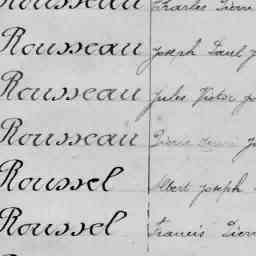 Rousseau Charles Pierre
Rousseau Joseph Paul
Rousseau Jules Victor
Rousseau Pierre Henri
Roussel Albert Joseph
Roussel Francis Pierre